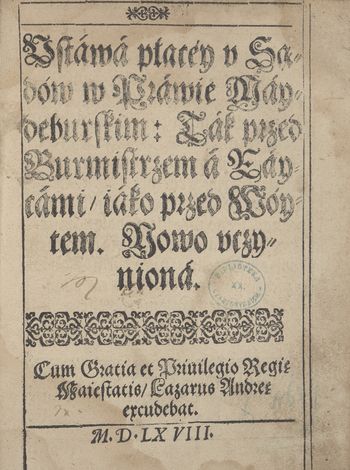 Vstáwá płacéy v Są⸗
dów w Práwie Máy⸗
deburskim: Ták przed
Burmistrzem á Ráy⸗
cámi/ iáko przed Wóy⸗
tem. Nowo vczy⸗
nioná.
BIBLIOTEKA
XX.
Cum Gratia et Priuilegio Regię
Maiestatis/ Lazarus Andreę
excudebat.
M.D.LXVIII.